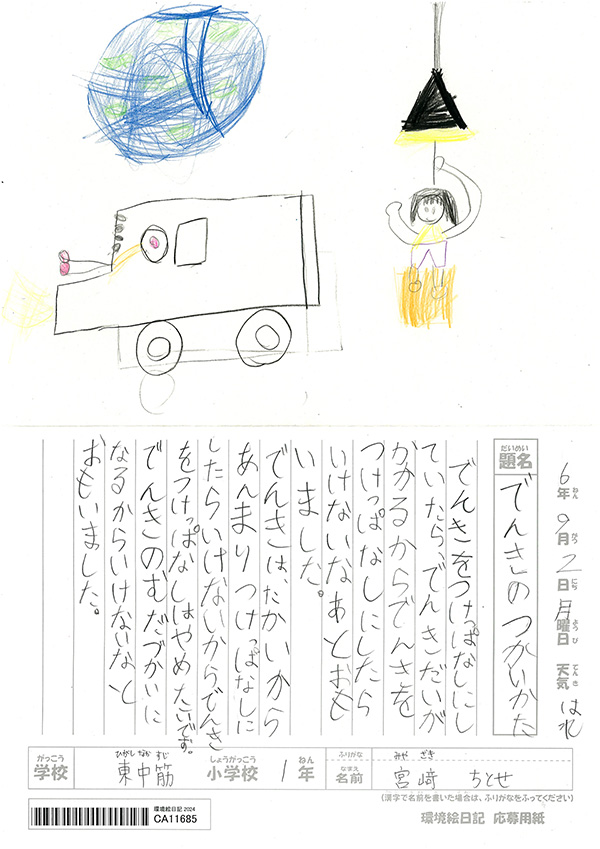 6年 9月 2日 月曜日 天気 はれ
ねん がつ にち ようび てんき
だいめい
題名
でんきのつかいかた
でんきをつけっぱなしにし
ていたら、でんきだいが
かかるからでんきを
つけっぱなしにしたら
いけないなあとおも
いました。
でんきは、たかいから
あんまりつけっぱなしに
したらいけないからでんき
をつけっぱなしはやめたいです。
でんきのむだづかいに
なるからいけないなと
おもいました。
がっこう
学校
ひがしなかすじ
東中筋
しょうがっこう
小学校
1年
ねん
ふりがな
みやざき
なまえ
名前
宮﨑 ちとせ
(漢字で名前を書いた場合は、ふりがなをふってください)
環境絵日記 応募用紙
環境絵日記 2024
CA11685